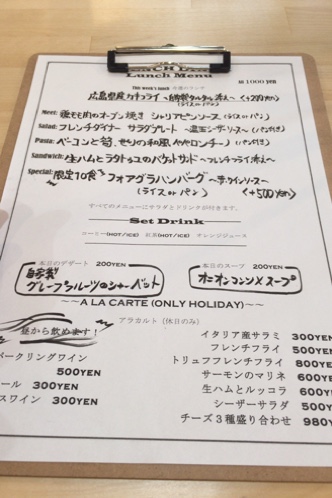 Lunch Menu
All 1000 yen
This week's lunch 今週のランチ
広島県産カキフライ〜自家製タルタル添え〜 <+200yen>
(ライス or パン)
Meet: 鶏もも肉のオーブン焼き シャリアピンソース (ライス or パン)
Salad: フレンチダイナー サラダプレート 〜温玉シーザーソース〜 (パン付き)
Pasta: ベーコンと茄、せりの和風ペペロンチーノ (パン付き)
Sandwich: 生ハムとラタトゥユのバケットサンド〜フレンチフライ添え〜
Special: 限定10食 フォアグラハンバーグ 〜赤ワインソース〜
(ライス or パン) <+500yen>
すべてのメニューにサラダとドリンクが付きます。
Set Drink
コーヒー(HOT/ICE) 紅茶(HOT/ICE) オレンジジュース
本日のデザート 200YEN
自家製
グレープフルーツのシャーベット
本日のスープ 200YEN
オニオンコンソメスープ
〜〜A LA CARTE (ONLY HOLIDAY)〜〜
アラカルト（休日のみ）
昼から飲めます！
パークリングワイン
500YEN
ール 300YEN
スワイン 300YEN
イタリア産サラミ 300YEN
フレンチフライ 500YEN
トリュフフレンチフライ 800YEN
サーモンのマリネ 600YEN
生ハムとルッコラ 600YEN
シーザーサラダ 500YEN
チーズ３種盛り合わせ 980YEN